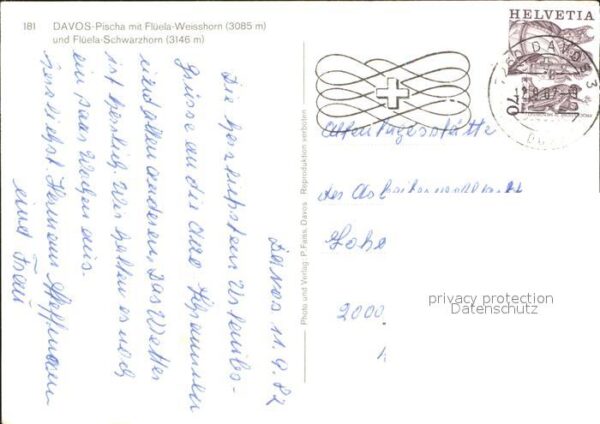 181 DAVOS-Pischa mit Flüela-Weisshorn (3085 m)
und Flüela-Schwarzhorn (3146 m)
HELVETIA
70
7260 DAVOS 3
Photo und Verlag P. Faiss, Davos Reproduktion verboten
Davos 11.9.82
Die herzlichsten Urlaubs-
Grüsse an die
und allen anderen, Das Wetter
ist herrlich. Wir halten es noch
ein paar Wochen aus.
herzlichst. Hermann Hoffmann
und Frau
Altentagesstätte
der Arbeiterwohlfahrt
Lohe
2000
privacy protection
Datenschutz